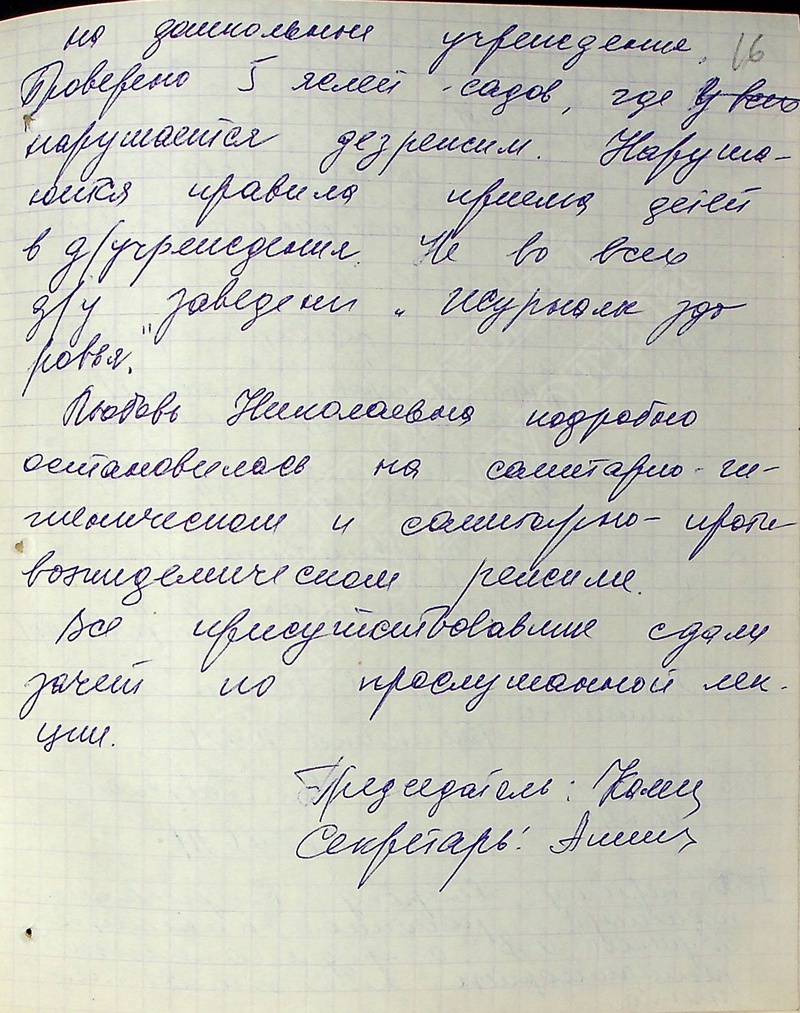 на дошкольные учреждения. 16
Проверено 5 яслей-садов, где у всех
нарушается дезрежим. Наруша-
ются правила приема детей
в д/учреждения. Не во всех
д/у заведены „Журналы здо
ровья."
Любовь Николаевна подробно
остановилась на санитарно-ги-
гиеническом и санитарно-проти
воэпидемическом режиме.
Все присутствовавшие сдали
зачет по прослушанной лек-
ции.
Председатель:
Секретарь: